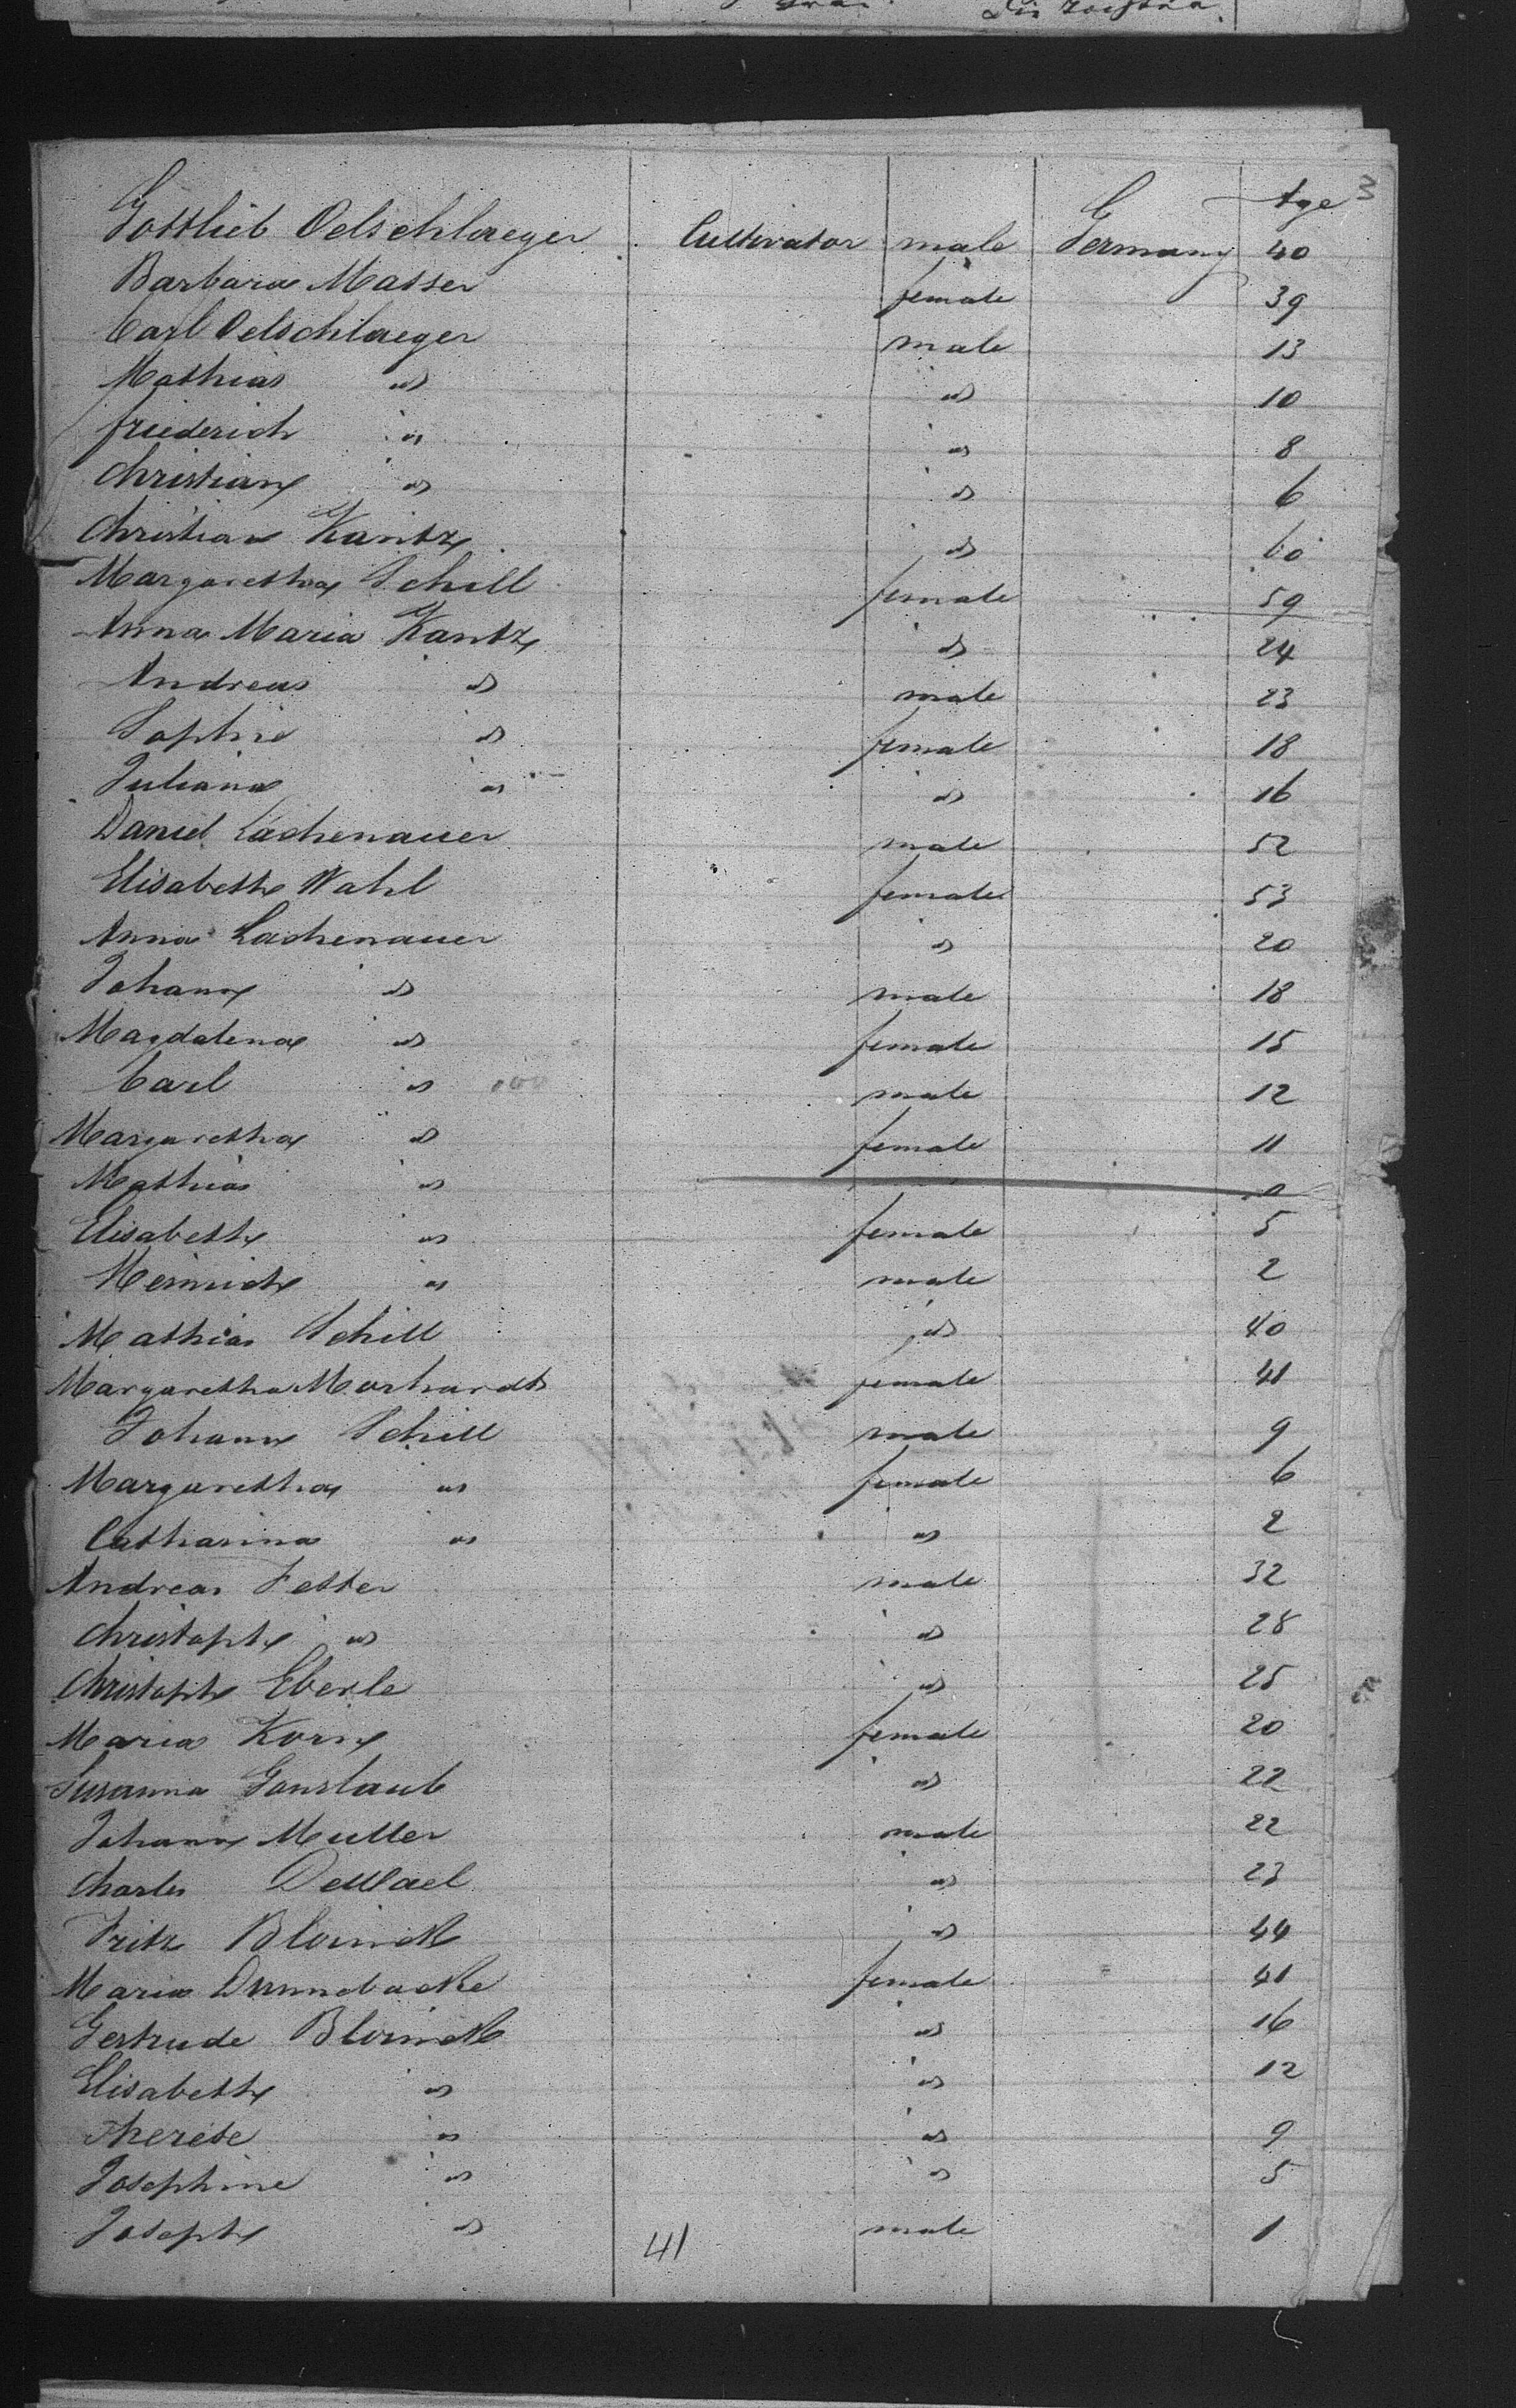 Age 3
Gottlieb Oelschlaeger Cultivator male Germany 40
Barbara Masser female 39
Carl Oelschlaeger male 13
Mathias do do 10
Friederich do do 8
Christian do do 6
Christian Kantz do 60
Margaretha Schill female 59
Anna Maria Kantz do 24
Andreas do male 23
Sophie do female 18
Juliana do do 16
Daniel Lachenauer male 52
Elisabeth Wahl female 53
Anna Lachenauer do 20
Johann do male 18
Magdalena do female 15
Carl do male 12
Margaretha do female 11
Mathias do
Elisabeth do female 5
Heinrich do male 2
Mathias Schill do 40
Margaretha Morhardt female 41
Johann Schill male 9
Margaretha do female 6
Catharina do do 2
Andreas Fetter male 32
Christoph do do 28
Christoph Eberle do 25
Maria Korn female 20
Susanna Gonslaub do 22
Johann Muller male 22
Charles do 23
Fritz Bloinck do 44
Maria Dunnebacke female 41
Gertrude Bloinck do 16
Elisabeth do do 12
Therese do do 9
Josephine do do 5
Joseph do 41 male 1